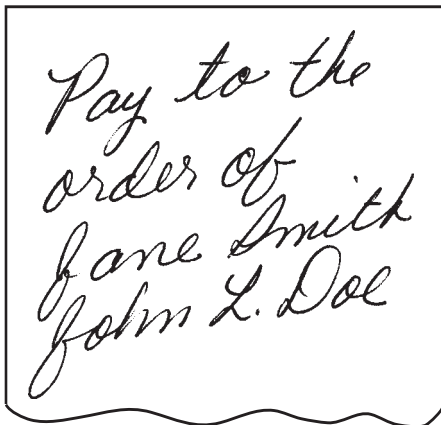 Pay to the
order of
Jane Smith
John L. Doe